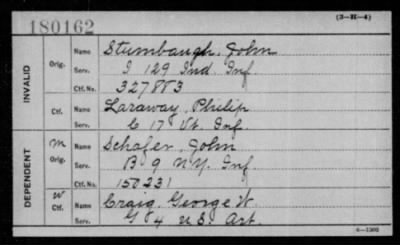 180162
(3—H—4)
INVALID
Orig.
Name Stumbaugh, John
Serv. I 129 Ind. Inf.
Ctf. No. 327883
Ctf.
Name Laraway, Philip
Serv. C 17 Vt. Inf.
DEPENDENT
M
Orig.
Name Schafer, John
Serv. B 9 N.Y. Inf.
Ctf. No. 150231
W
Ctf.
Name Craig, George W.
Serv. G 4 U.S. Art.